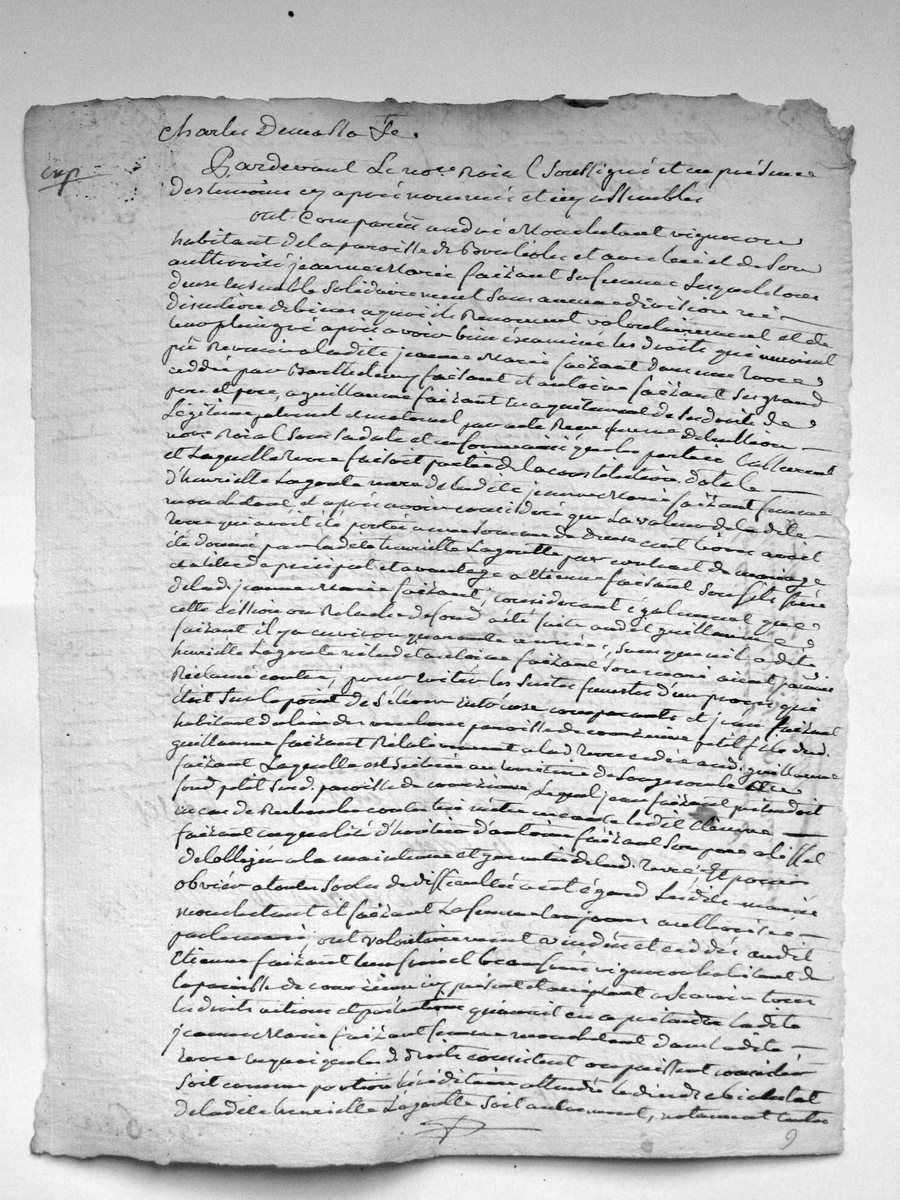 Charles
exp
Pardevant Le no.re Roial Soussigné et en présence
des temoins cy après nommés et assembles
ont Comparu andré Monchetant vigneron
habitant de la paroisse de et avec lui et de Son
authorité jeanne Marie faizant sa femme Lesquels tous
deux ensemble Solidairement Sans aucune division ni
discution de biens a quoi ils Renoncent volontairement et de
leur plein gré après avoir bien examiné les droits que
pu Revenir a ladite jeanne Marie faizant dans une terre
ceddée par Barthelemy faizant et antoine faizant Ses grand
pere et pere, a guillaume faizant en aquittement de Ses droits de
Légitime paternel et maternel par acte Reçu
no.re Roial Sous Sa date et
et Laquelle terre faisoit partie de la constitution dotale
d'henriette Lagoutte mere de ladite jeanne Marie faizant femme
monchetant, et après avoir consideré que La valeur de la dite
terre qui avoit été portée a une Somme de deux cent livres avoit
été donné par ladite henriette Lagoutte par contrat de mariage
et a titre de principal et avantage a Etienne faizant Son fils frère
de lad. jeanne Marie faizant, considerant également que
cette cession ou Relache de fond a été faite aud. guillaume
faizant il y a environ quarante années, Sans que ni ladite
henriette Lagoutte ni led. antoine faizant Son mari aient jamais
Réclamé contre; pour eviter les Suites funestes d'un procès qui
étoit Sur le point de S'élever entre les comparants et jean faizant
habitant du lieu de paroisse de petit fils dud.
guillaume faizant Relativement a lad. terre ceddée aud. guillaume
faizant Laquelle est Scituée au territoire de
fond Sus d. paroisse de Lequel jean faizant prétendoit
en cas de Recherche contre lui mettre en cause ledit Etienne
faizant en qualité d'héritier d'antoine faizant Son père a l'effet
de l'obliger a la maintenue et garantie de lad. terre; Et pour
obvier a toutes Sortes de difficultés a cet égard Lesdits mariés
monchetant et faizant La femme toujours authorisée
par le mari, ont volontairement vendu et ceddé audit
Etienne faizant leur frere et beau frere vigneron habitant de
la paroisse de cy présent et acceptant a Scavoir tous
les droits actions et prétentions qu'avoit ou a pretendre ladite
jeanne Marie faizant femme monchetant dans ladite
terre en quoi que les d. droits consistent ou puissent consister
soit comme portion héréditaire attendu le decès ab intestat
de la dite henriette Lagoutte soit autrement, notamment
9